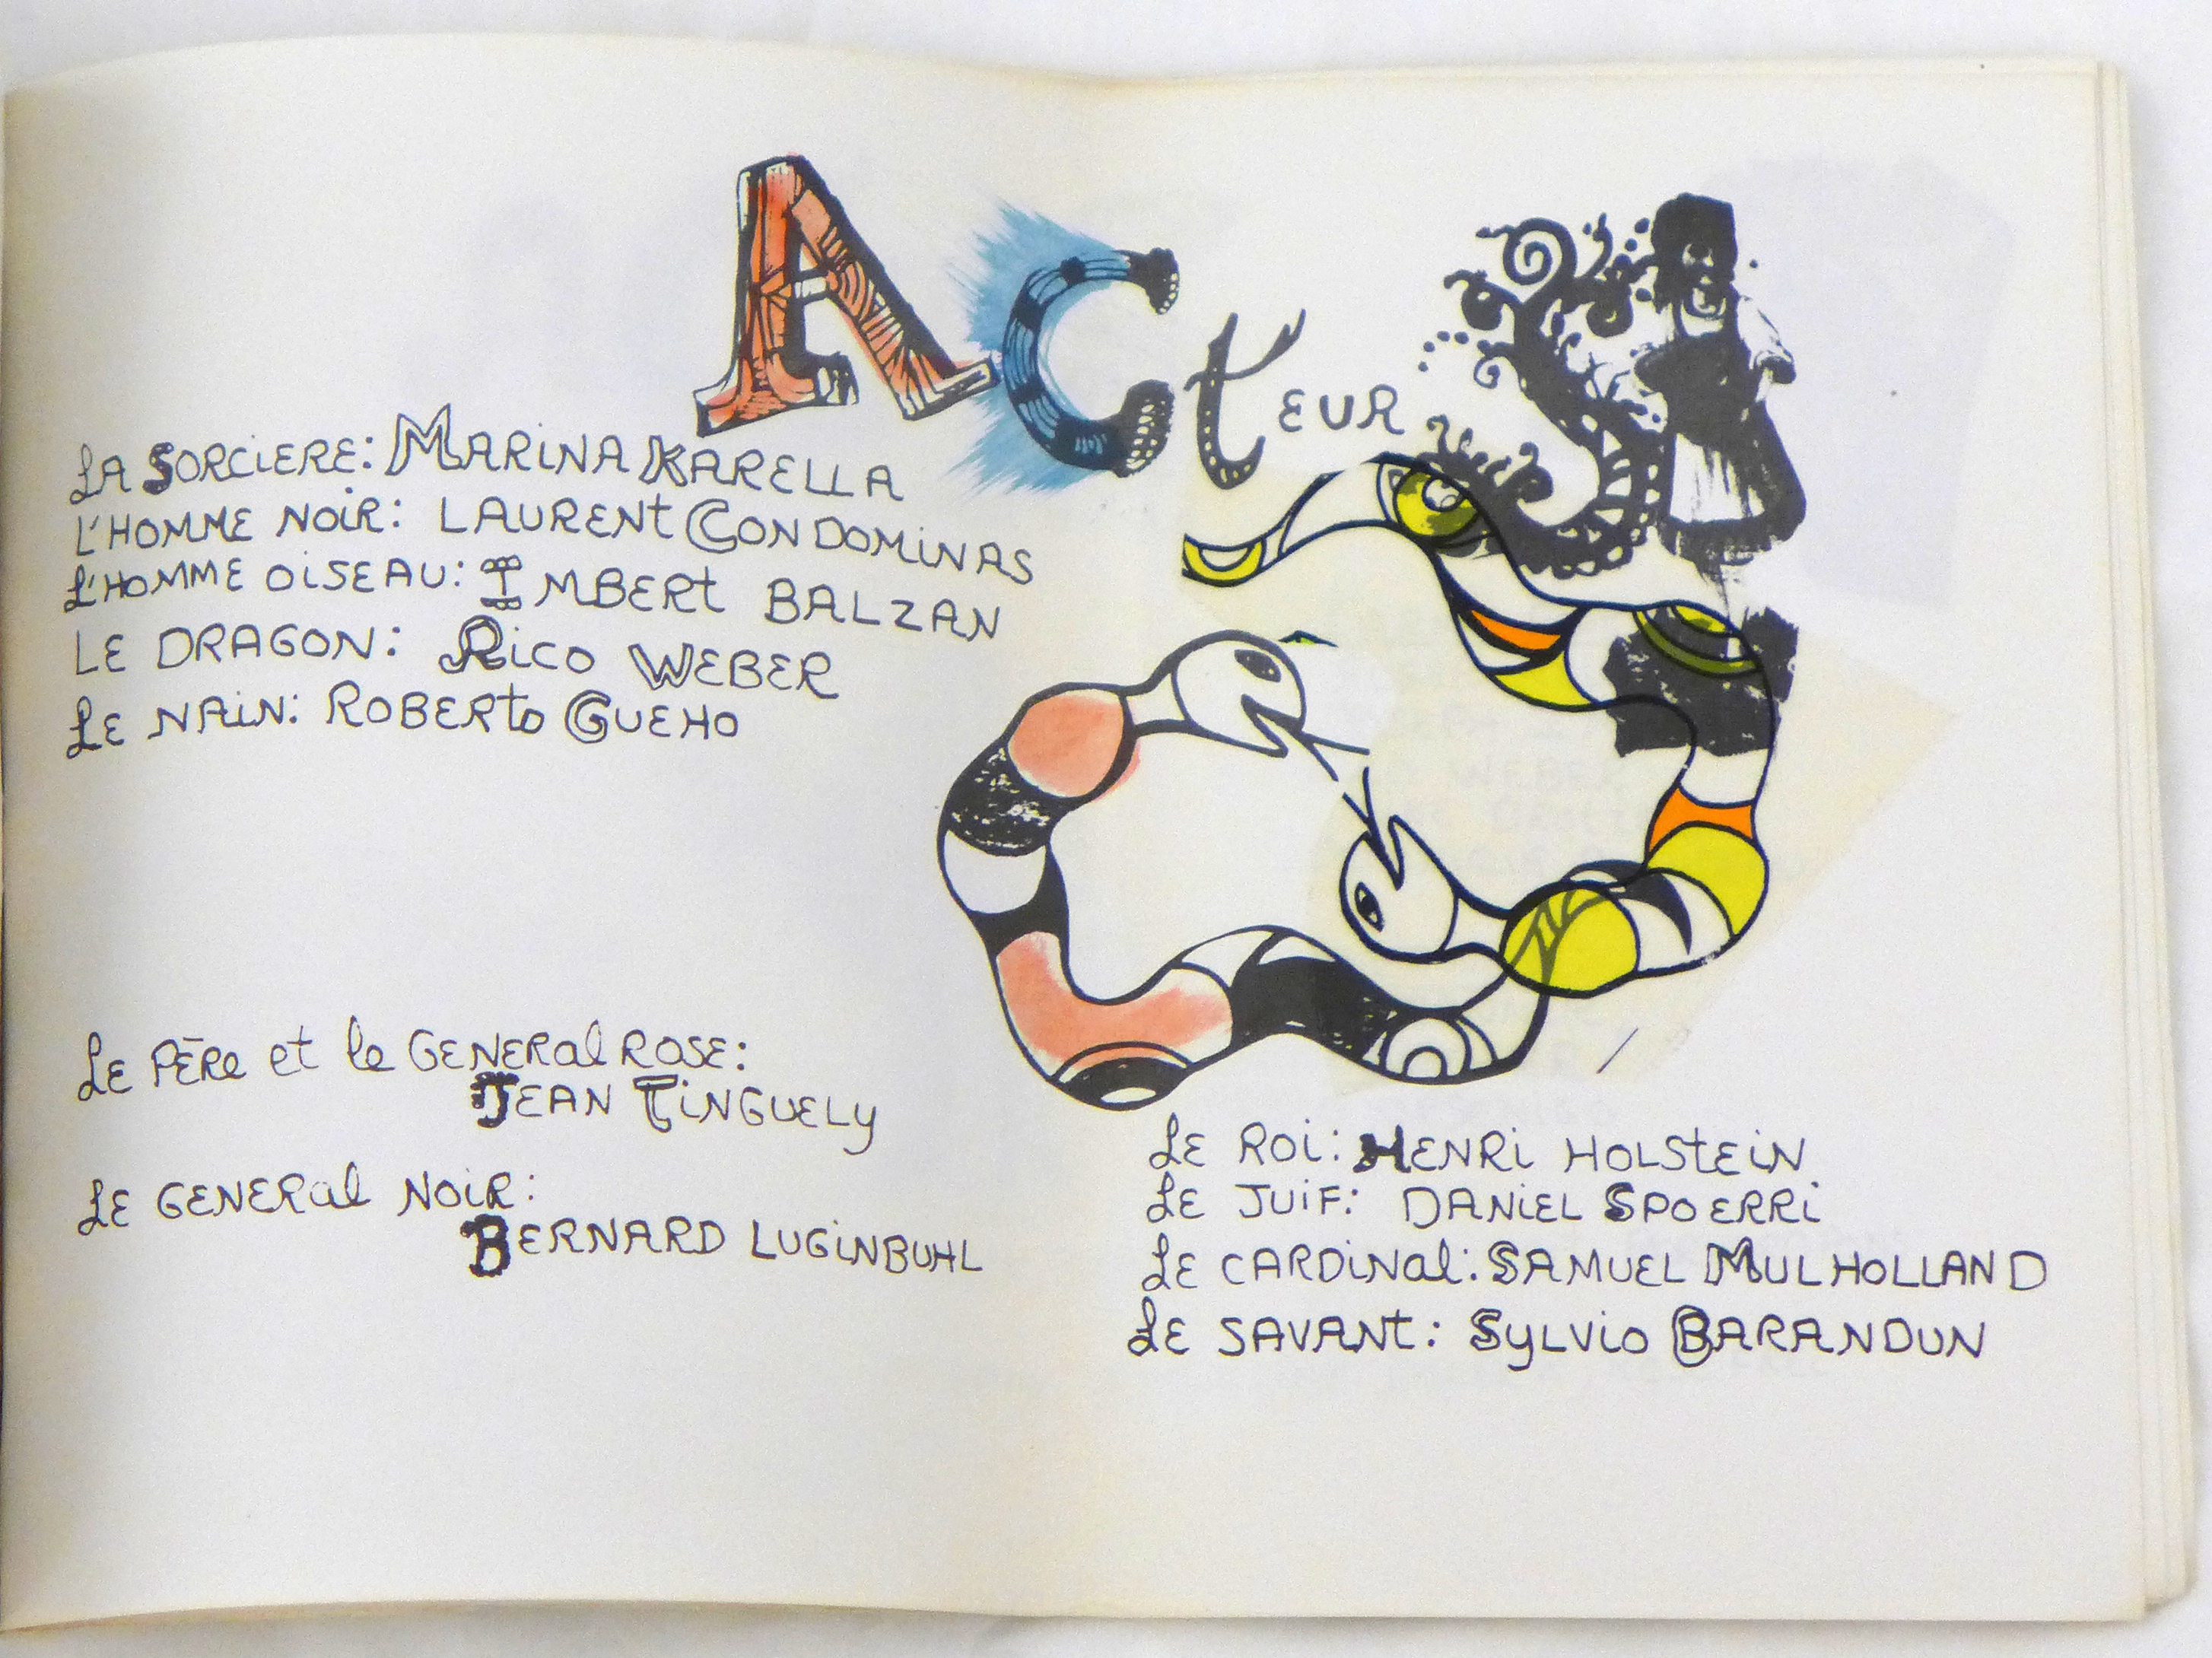 ACtEUR
LA SORCIERE: MARINA KARELLA
L'HOMME NOIR: LAURENt CONDOMINAS
L'HOMME OISEAU: IMBERt BALZAN
LE DRAGON: RICO WEBER
LE NAIN: ROBERto GUEHO
LE PĒRe et le GENERal ROSE:
JEAN TINGUELY
LE GENERal NOIR:
BERNARD LUGINBUHL
LE ROI: HENRI HOLStEIN
LE JUIF: DANIEL SPOERRI
LE CARDINal: SAMUEL MULHOLLAND
LE SAVANt: SYLVIO BARANDUN